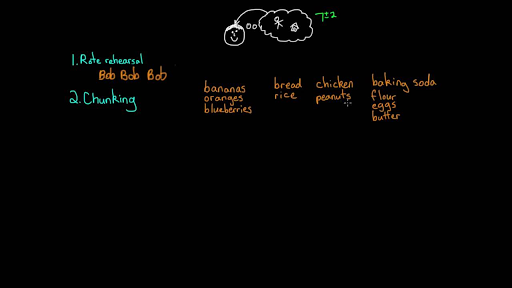 7±2
1. Rote rehearsal
Bob Bob Bob
2. Chunking
bananas
oranges
blueberries
bread
rice
chicken
peanuts
baking soda
flour
eggs
butter